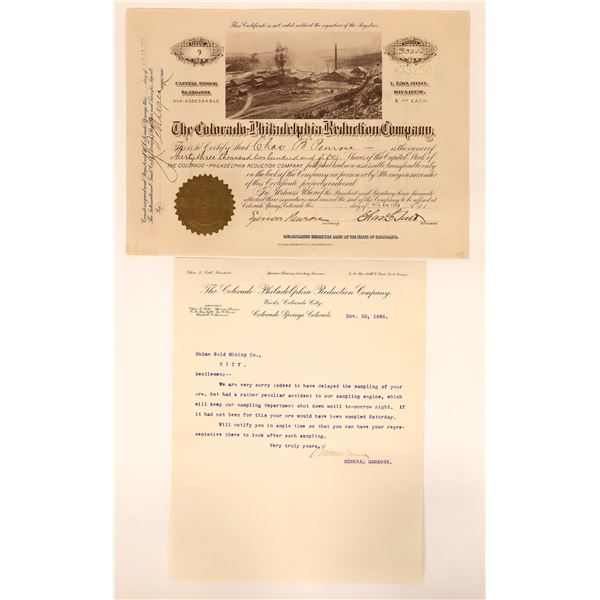 This Certificate is not valid without the signature of the Registrar
9
33250
33250
CAPITAL STOCK
NON-ASSESSABLE
SHARES
$1.00 EACH.
The Colorado-Philadelphia Reduction Company,
This is to Certify that Chas B Penrose is the owner of
Thirty three thousand two hundred and fifty Shares of the Capital Stock of
THE COLORADO-PHILADELPHIA REDUCTION COMPANY, full paid and non assessable transferable only
on the book of the Company in person or by Attorney on surrender of
this Certificate properly endorsed.
In Witness Whereof the President and Secretary have hereunto
attached their signatures and caused the seal of the Company to be affixed at
Colorado Springs, Colorado this day of
Spencer Penrose
Chas L Tutt
INCORPORATED UNDER THE LAWS OF THE STATE OF COLORADO.
The Colorado Philadelphia Reduction Company,
Works, Colorado City.
Colorado Springs, Colorado
Nov. 30, 1896.
Gold Mining Co.,
CITY.
Gentlemen:--
We are very sorry indeed to have delayed the sampling of your
ore, but had a rather peculiar accident to our sampling engine, which
will keep our sampling department shut down until to-morrow night. If
it had not been for this your ore would have been sampled Saturday.
Will notify you in ample time so that you can have your repre-
sentative there to look after such sampling.
Very truly yours,
GENERAL MANAGER.